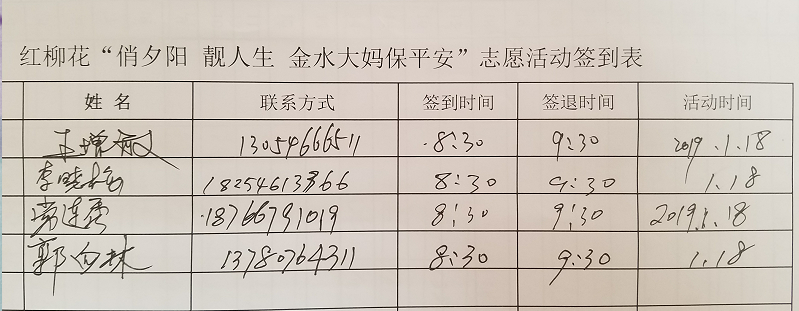 红柳花“俏夕阳 靓人生 金水大妈保平安”志愿活动签到表
姓 名 联系方式 签到时间 签退时间 活动时间
王增敏 13054666511 8:30 9:30 2019.1.18
李晓梅 18254613766 8:30 9:30 1.18
常连 18766791019 8:30 9:30 2019.1.18
郭向林 13780764311 8:30 9:30 1.18